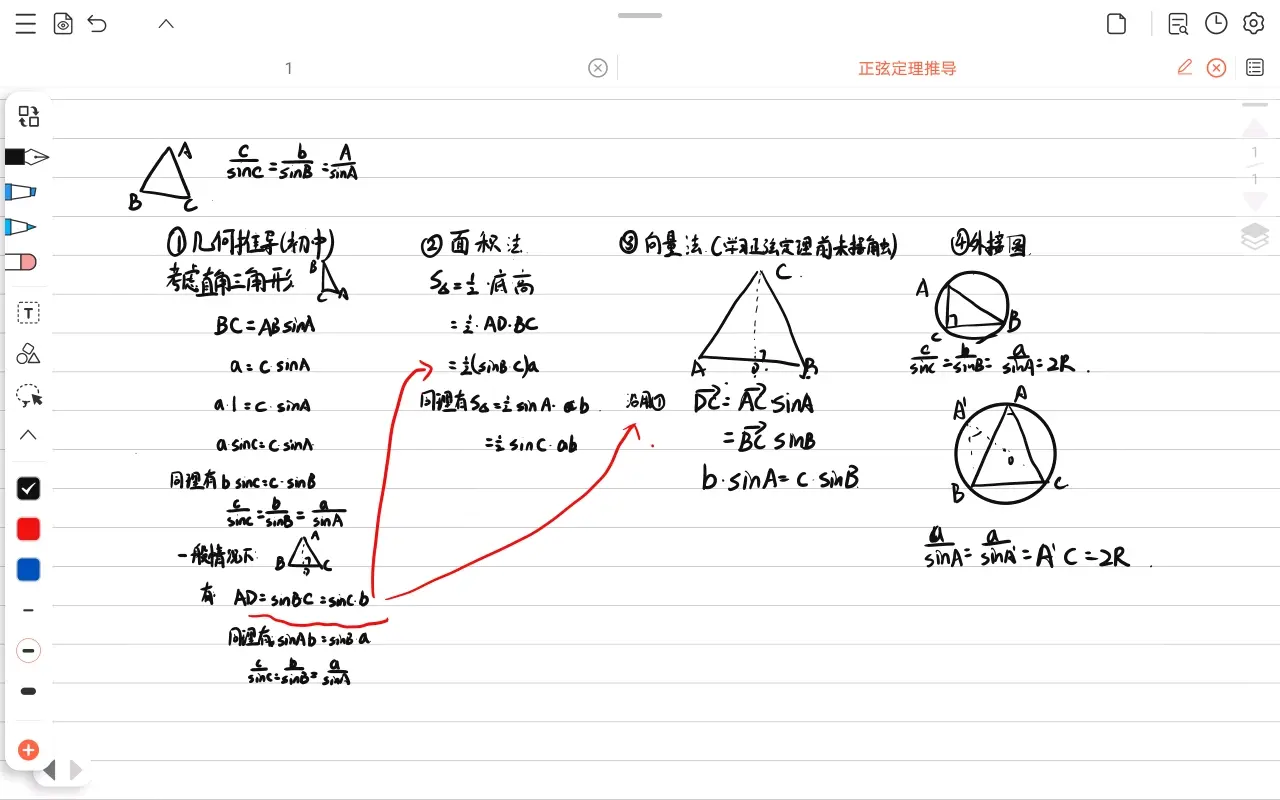 1
正弦定理推导
A
B
C
c/sinC = b/sinB = A/sinA
①几何推导(初中)
考虑直角三角形
B
C A
BC = AB sinA
a = c · sinA
a · 1 = c · sinA
a · sinC = c · sinA
同理有 b sinC = c · sinB
c/sinC = b/sinB = a/sinA
一般情况下
A
B C
有 AD = sinBC = sinC · b
同理有 sinAb = sinB · a
c/sinC = b/sinB = a/sinA
②面积法
S△ = ½ · 底高
= ½ · AD · BC
= ½(sinB · c)a
同理有 S△ = ½ sinA · ab
= ½ sinC · ab
③向量法(学习正弦定理前未接触)
C
A D B
沿用① DC = AC sinA
= BC sinB
b · sinA = c · sinB
④外接圆
A
C B
c/sinC = b/sinB = a/sinA = 2R
A
A'
O
B C
a/sinA = a/sinA' = A'C = 2R
1
1
T